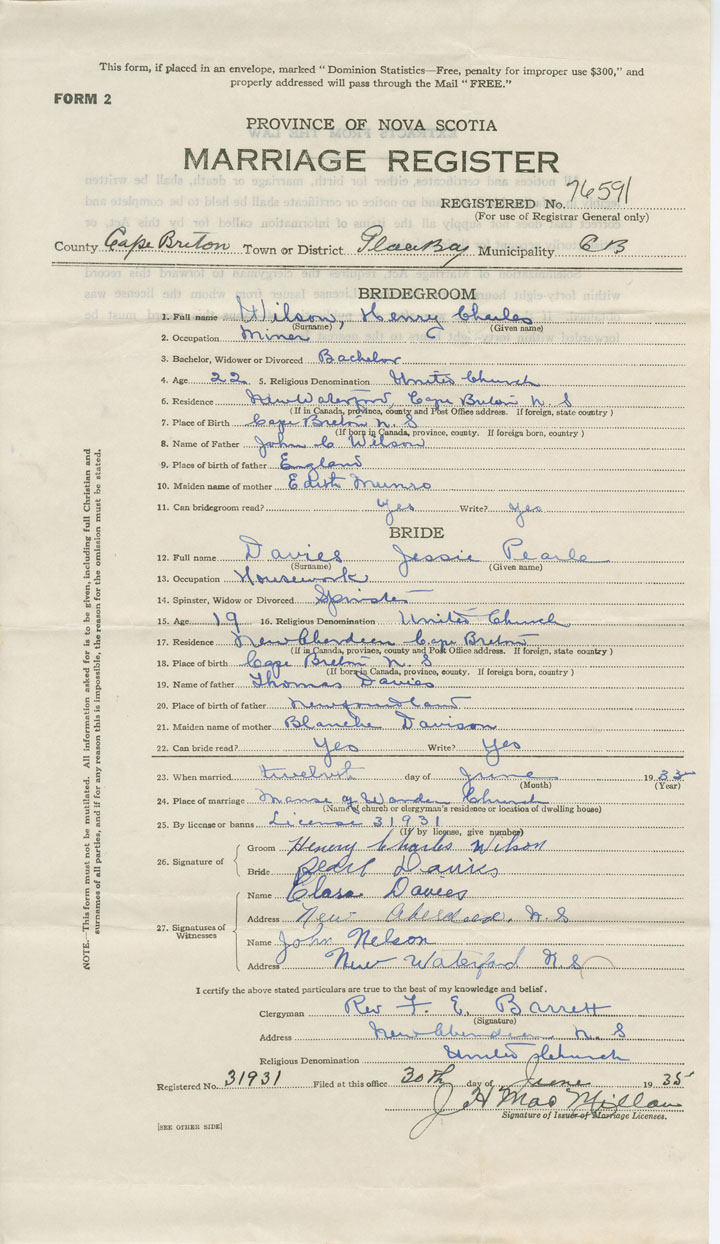 This form, if placed in an envelope, marked "Dominion Statistics—Free, penalty for improper use $300," and
properly addressed will pass through the Mail "FREE."
FORM 2
PROVINCE OF NOVA SCOTIA
MARRIAGE REGISTER
REGISTERED No. 76591
(For use of Registrar General only)
County Cape Breton Town or District Glace Bay Municipality C B
BRIDEGROOM
1. Full name Wilson, Henry Charles
(Surname) (Given name)
2. Occupation Miner
3. Bachelor, Widower or Divorced Bachelor
4. Age 22 5. Religious Denomination United Church
6. Residence New Waterford, Cape Breton N. S
(If in Canada, province, county and Post Office address. If foreign, state country)
7. Place of Birth Cape Breton N. S
(If born in Canada, province, county. If foreign born, country)
8. Name of Father John C Wilson
9. Place of birth of father England
10. Maiden name of mother Edith Munro
11. Can bridegroom read? Yes Write? Yes
BRIDE
12. Full name Davies Jessie Pearle
(Surname) (Given name)
13. Occupation Housework
14. Spinster, Widow or Divorced Spinster
15. Age 19 16. Religious Denomination United Church
17. Residence New Aberdeen Cape Breton
(If in Canada, province, county and Post Office address. If foreign, state country)
18. Place of birth Cape Breton N. S
(If born in Canada, province, county. If foreign born, country)
19. Name of father Thomas Davies
20. Place of birth of father Newfoundland
21. Maiden name of mother Blanche Davison
22. Can bride read? Yes Write? Yes
23. When married twelfth day of June 1935
(Month) (Year)
24. Place of marriage Manse of Warden Church
(Name of church or clergyman's residence or location of dwelling house)
25. By license or banns License 31931
(If by license, give number)
26. Signature of
Groom Henry Charles Wilson
Bride Pearl Davies
27. Signatures of Witnesses
Name Clara Davies
Address New Aberdeen, N. S
Name John Nelson
Address New Waterford N. S
I certify the above stated particulars are true to the best of my knowledge and belief.
Clergyman Rev F. E. Barrett
(Signature)
Address New Aberdeen N. S
Religious Denomination United Church
Registered No. 31931 Filed at this office 30th day of June 1935
J H MacMillan
Signature of Issuer of Marriage Licenses.
[SEE OTHER SIDE]
NOTE.—This form must not be mutilated. All information asked for is to be given, including full Christian and
surnames of all parties, and if for any reason this is impossible, the reason for the omission must be stated.